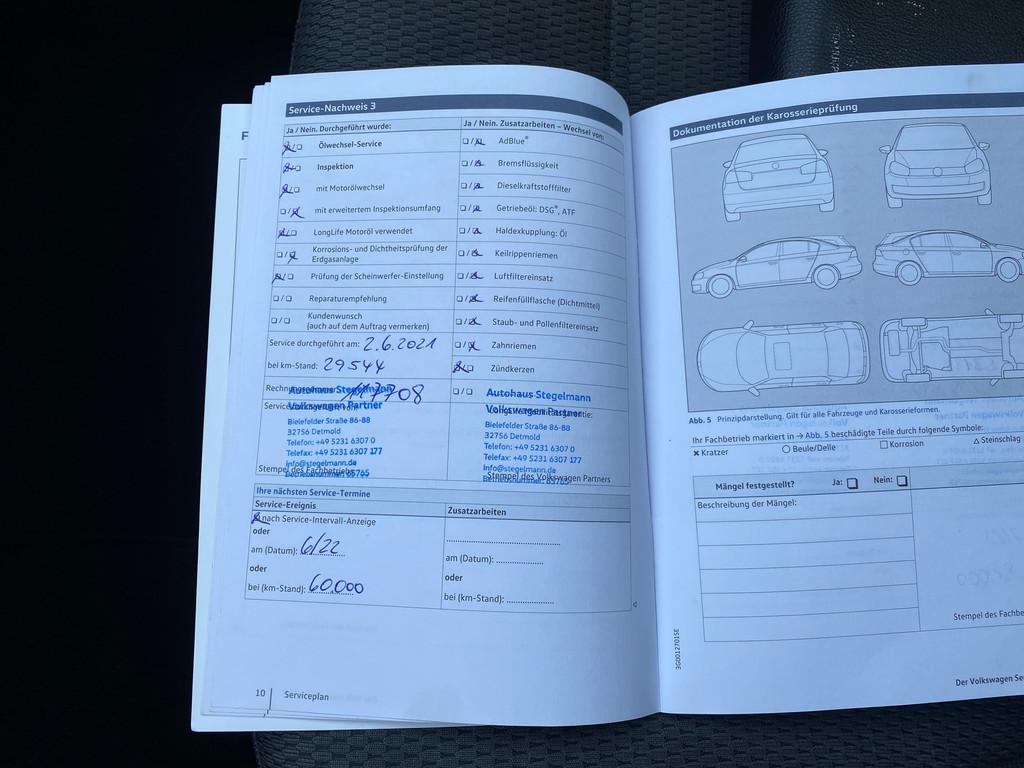 F
Service-Nachweis 3
Ja / Nein. Durchgeführt wurde:
Ölwechsel-Service
Inspektion
mit Motorölwechsel
mit erweitertem Inspektionsumfang
LongLife Motoröl verwendet
Korrosions- und Dichtheitsprüfung der
Erdgasanlage
Prüfung der Scheinwerfer-Einstellung
Reparaturempfehlung
Kundenwunsch
(auch auf dem Auftrag vermerken)
Service durchgeführt am: 2.6.2021
bei km-Stand: 29544
117708
Autohaus Stegelmann
Volkswagen Partner
Bielefelder Straße 86-88
32756 Detmold
Telefon: +49 5231 6307 0
Telefax: +49 5231 6307 177
info@stegelmann.de
Stempel des Fachbetriebs
Ja / Nein. Zusatzarbeiten – Wechsel von:
AdBlue®
Bremsflüssigkeit
Dieselkraftstofffilter
Getriebeöl: DSG®, ATF
Haldexkupplung: Öl
Keilrippenriemen
Luftfiltereinsatz
Reifenfüllflasche (Dichtmittel)
Staub- und Pollenfiltereinsatz
Zahnriemen
Zündkerzen
Autohaus Stegelmann
Volkswagen Partner
Bielefelder Straße 86-88
32756 Detmold
Telefon: +49 5231 6307 0
Telefax: +49 5231 6307 177
info@stegelmann.de
Stempel des Volkswagen Partners
Ihre nächsten Service-Termine
Service-Ereignis
nach Service-Intervall-Anzeige
oder
am (Datum): 6/22
oder
bei (km-Stand): 60.000
Zusatzarbeiten
am (Datum):
oder
bei (km-Stand):
10 Serviceplan
Dokumentation der Karosserieprüfung
Abb. 5 Prinzipdarstellung. Gilt für alle Fahrzeuge und Karosserieformen.
Ihr Fachbetrieb markiert in → Abb. 5 beschädigte Teile durch folgende Symbole:
Kratzer
Beule/Delle
Korrosion
Steinschlag
Mängel festgestellt? Ja: Nein:
Beschreibung der Mängel:
Stempel des Fachbe
3G0012701SE
Der Volkswagen Se